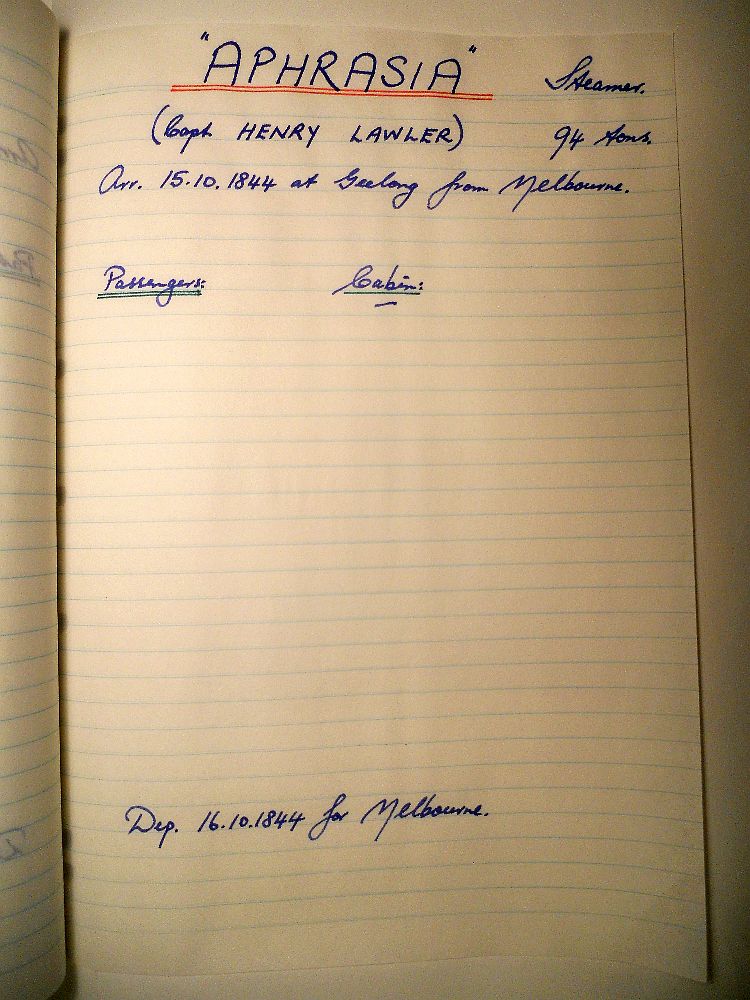 "APHRASIA" Steamer.
(Capt HENRY LAWLER) 94 tons.
Arr. 15.10.1844 at Geelong from Melbourne.
Passengers: Cabin:
Dep. 16.10.1844 for Melbourne.